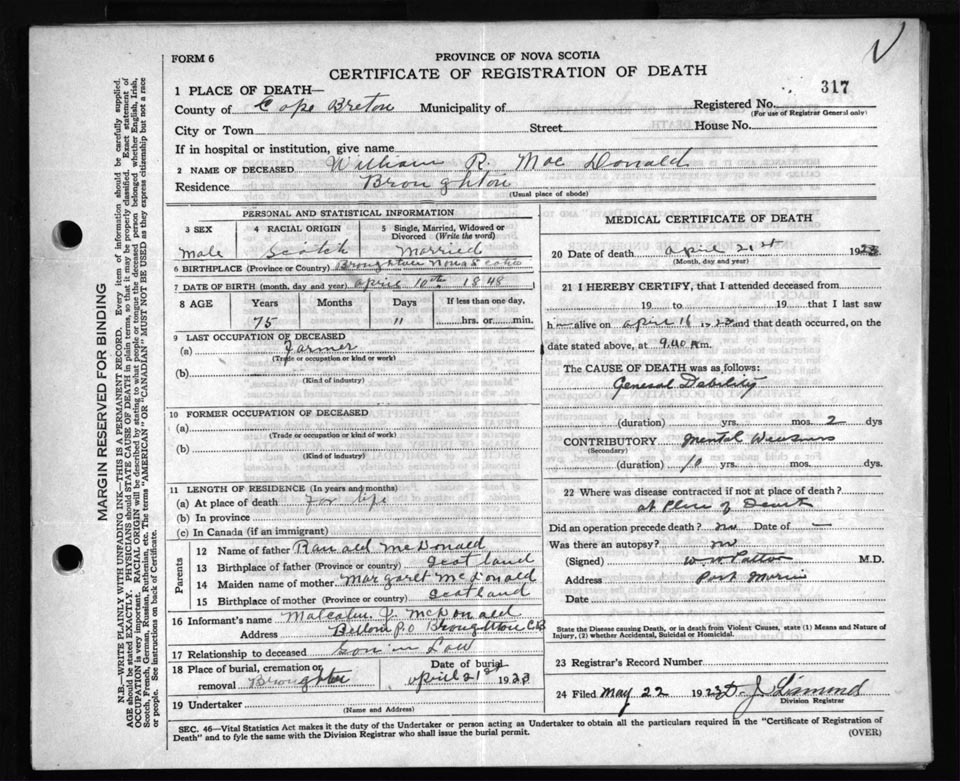 FORM 6
PROVINCE OF NOVA SCOTIA
CERTIFICATE OF REGISTRATION OF DEATH
317
1 PLACE OF DEATH—
County of Cape Breton Municipality of Registered No.
(For use of Registrar General only)
City or Town Street House No.
If in hospital or institution, give name
2 NAME OF DECEASED William R. Mac Donald
Residence Broughton
(Usual place of abode)
PERSONAL AND STATISTICAL INFORMATION
3 SEX 4 RACIAL ORIGIN 5 Single, Married, Widowed or Divorced (Write the word)
Male Scotch Married
6 BIRTHPLACE (Province or Country) Broughton Nova Scotia
7 DATE OF BIRTH (month, day and year) April 10th 1848
8 AGE Years Months Days If less than one day,
75 11 hrs. or min.
9 LAST OCCUPATION OF DECEASED
(a) Farmer
(Trade or occupation or kind or work)
(b)
(Kind of industry)
10 FORMER OCCUPATION OF DECEASED
(a)
(Trade or occupation or kind of work)
(b)
(Kind of industry)
11 LENGTH OF RESIDENCE (In years and months)
(a) At place of death For life
(b) In province
(c) In Canada (if an immigrant)
Parents
12 Name of father Ranald McDonald
13 Birthplace of father (Province or country) Scotland
14 Maiden name of mother Margaret McDonald
15 Birthplace of mother (Province or country) Scotland
16 Informant's name Malcolm J. McDonald
Address P.O Broughton C.B
17 Relationship to deceased Son in Law
18 Place of burial, cremation or removal Broughton Date of burial April 21st 1923
19 Undertaker
(Name and Address)
MEDICAL CERTIFICATE OF DEATH
20 Date of death April 21st 1923
(Month, day and year)
21 I HEREBY CERTIFY, that I attended deceased from
19 to 19 that I last saw
him alive on April 16 1923 and that death occurred, on the
date stated above, at 9.40 A m.
The CAUSE OF DEATH was as follows:
General Debility
(duration) yrs. mos. 2 dys
CONTRIBUTORY Mental Weakness
(Secondary)
(duration) 10 yrs. mos. dys.
22 Where was disease contracted if not at place of death?
at Place of Death
Did an operation precede death? no Date of —
Was there an autopsy? no
(Signed) M.D.
Address Port Morien
Date
State the Disease causing Death, or in death from Violent Causes, state (1) Means and Nature of
Injury, (2) whether Accidental, Suicidal or Homicidal.
23 Registrar's Record Number
24 Filed May 22 1923
Division Registrar
SEC. 46—Vital Statistics Act makes it the duty of the Undertaker or person acting as Undertaker to obtain all the particulars required in the "Certificate of Registration of
Death" and to fyle the same with the Division Registrar who shall issue the burial permit.
(OVER)
MARGIN RESERVED FOR BINDING
N.B.—WRITE PLAINLY WITH UNFADING INK—THIS IS A PERMANENT RECORD. Every item of information should be carefully supplied.
AGE should be stated EXACTLY. PHYSICIANS should STATE CAUSE OF DEATH in plain terms, so that it may be properly classified. Exact statement of
OCCUPATION is very important. RACIAL ORIGIN will be described by stating to what people or tongue the deceased person belonged whether English, Irish,
Scotch, French, German, Russian, Ruthenian, etc. The terms "AMERICAN" OR "CANADIAN" MUST NOT BE USED as they express citizenship but not a race
or people. See instructions on back of Certificate.